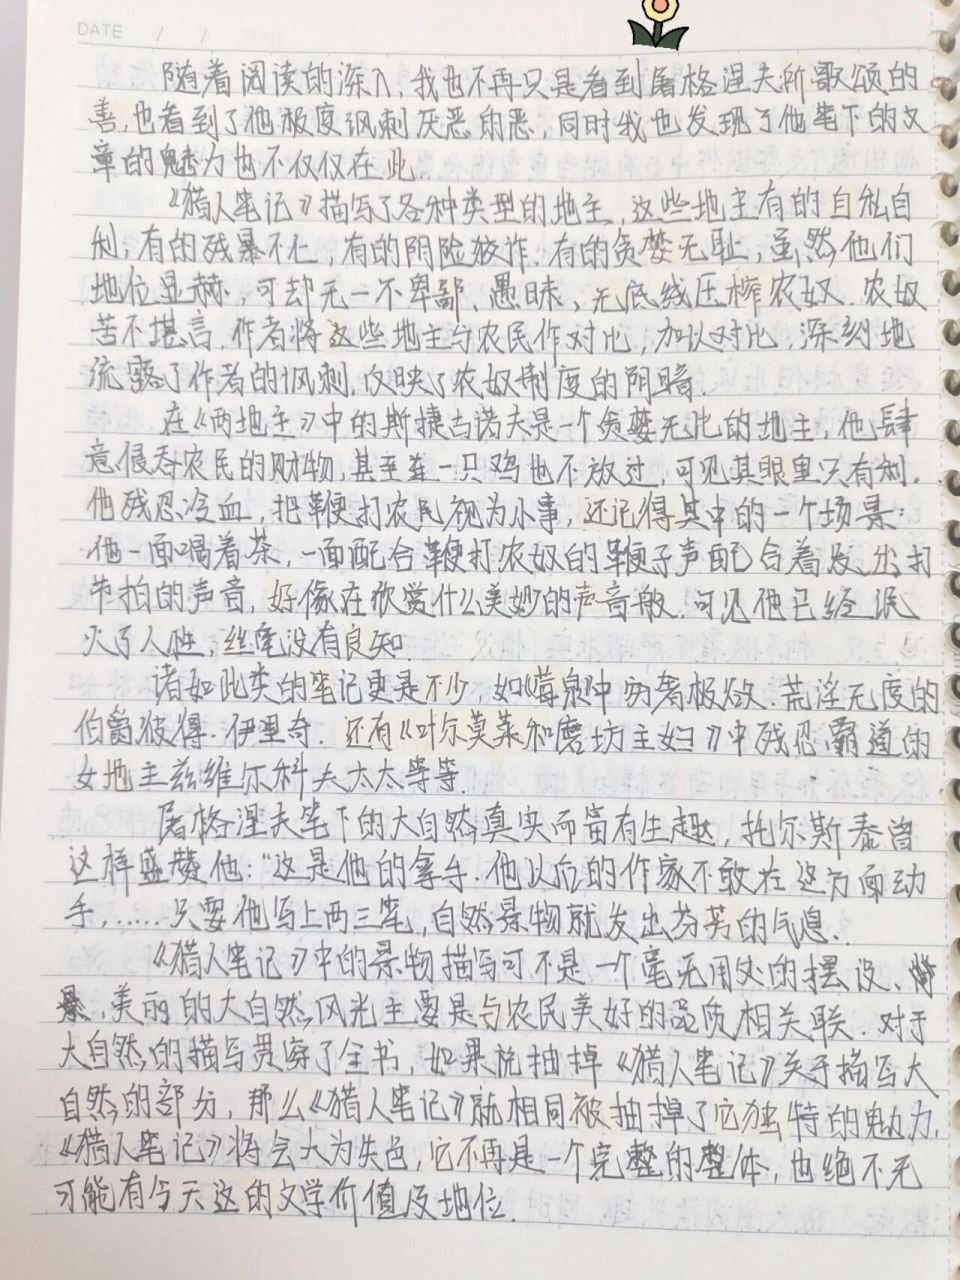 DATE / /
随着阅读的深入,我也不再只是看到屠格涅夫所歌颂的
善,也看到了他极度讽刺厌恶的恶,同时我也发现了他笔下的文
章的魅力也不仅仅在此.
《猎人笔记》描写了各种类型的地主,这些地主有的自私自
利,有的残暴不仁,有的阴险狡诈.有的贪婪无耻,虽然他们
地位显赫,可却无一不卑鄙、愚昧,无底线压榨农奴.农奴
苦不堪言.作者将这些地主与农民作对比,加以对比,深刻地
流露了作者的讽刺,反映了农奴制度的阴暗.
在《两地主》中的斯捷古诺夫是一个贪婪无比的地主,他肆
意侵吞农民的财物,甚至连一只鸡也不放过,可见其眼里只有利.
他残忍冷血,把鞭打农民视为小事,还记得其中的一个场景:
他一面喝着茶,一面配合鞭打农奴的鞭子声配合着发出打
节拍的声音,好像在欣赏什么美妙的声音般.可见他已经泯
灭了人性,丝毫没有良知.
诸如此类的笔记更是不少.如《莓泉》中穷奢极欲.荒淫无度的
伯爵彼得·伊里奇.还有《叶尔莫莱和磨坊主妇》中残忍霸道的
女地主兹维尔科夫太太等等.
屠格涅夫笔下的大自然真实而富有生趣,托尔斯泰曾
这样盛赞他:“这是他的拿手.他以后的作家不敢在这方面动
手,……只要他写上两三笔,自然景物就发出芬芳的气息.
《猎人笔记》中的景物描写可不是一个毫无用处的摆设、
美丽的大自然风光主要是与农民美好的品质相关联.对于
大自然的描写贯穿了全书,如果抽掉《猎人笔记》关于描写大
自然的部分,那么《猎人笔记》就相同被抽掉了它独特的魅力,
《猎人笔记》将会大为失色,它不再是一个完整的整体,也绝不无
可能有今天这的文学价值及地位.